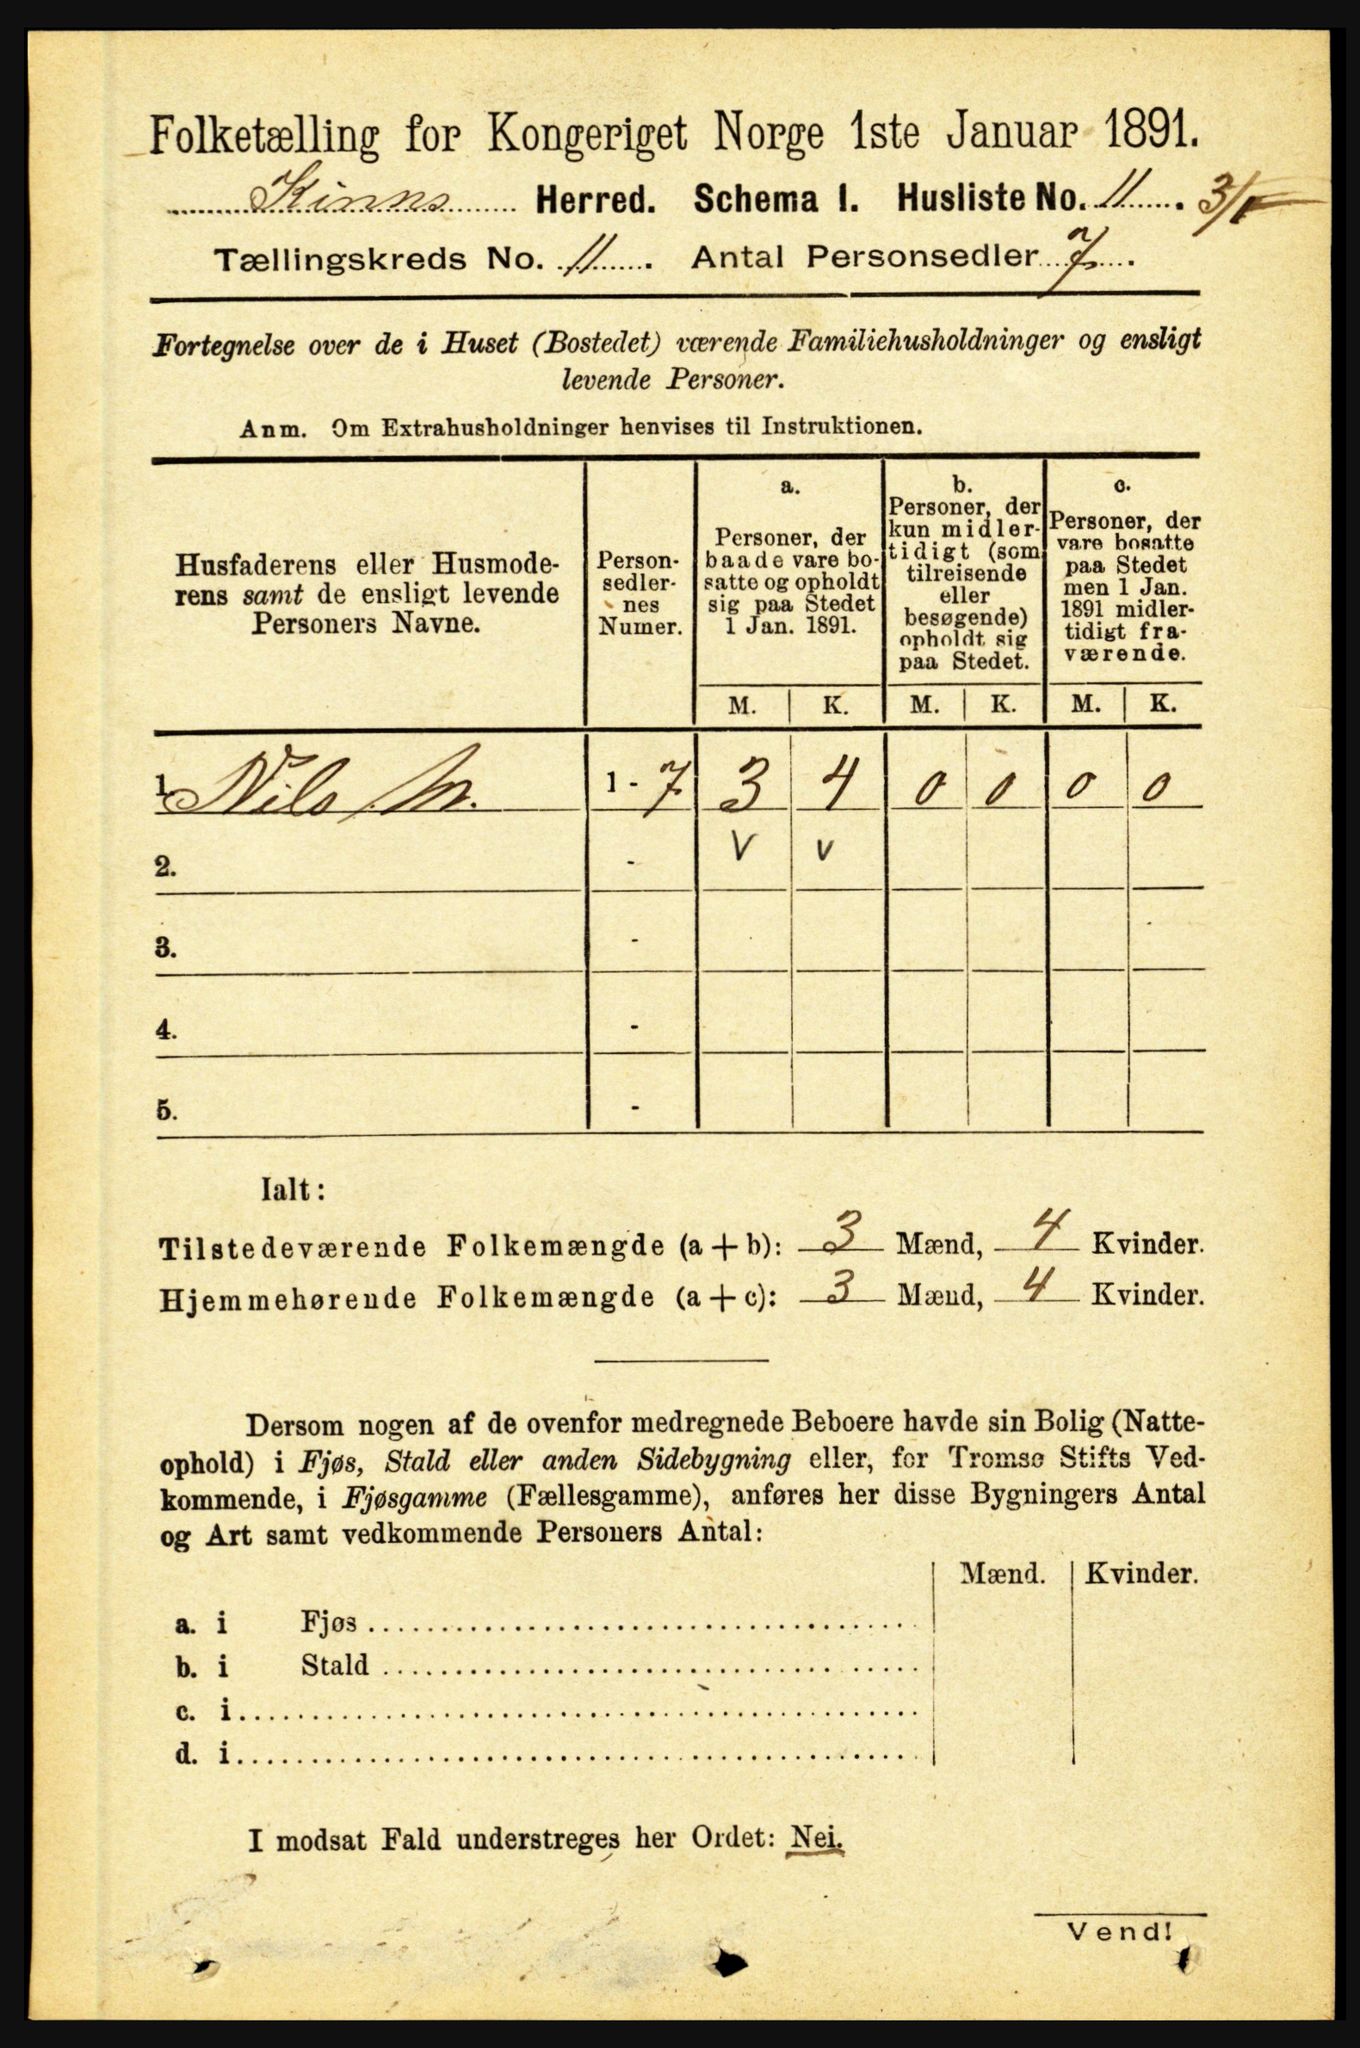 Folketælling for Kongeriget Norge 1ste Januar 1891.
Kinns Herred. Schema I. Husliste No. 11. 3/1
Tællingskreds No. 11. Antal Personsedler 7.
Fortegnelse over de i Huset (Bostedet) værende Familiehusholdninger og ensligt
levende Personer.
Anm. Om Extrahusholdninger henvises til Instruktionen.
Husfaderens eller Husmode-
rens samt de ensligt levende
Personers Navne.
Person-
sedler-
nes
Numer.
a.
Personer, der
baade vare bo-
satte og opholdt
sig paa Stedet
1 Jan. 1891.
b.
Personer, der
kun midler-
tidigt (som
tilreisende
eller
besøgende)
opholdt sig
paa Stedet.
c.
Personer, der
vare bosatte
paa Stedet
men 1 Jan.
1891 midler-
tidigt fra-
værende.
M. K. M. K. M. K.
1. Nils M. 1 - 7 3 4 0 0 0 0
2. - v v
3. -
4. -
5. -
Ialt:
Tilstedeværende Folkemængde (a + b): 3 Mænd, 4 Kvinder.
Hjemmehørende Folkemængde (a + c): 3 Mænd, 4 Kvinder.
Dersom nogen af de ovenfor medregnede Beboere havde sin Bolig (Natte-
ophold) i Fjøs, Stald eller anden Sidebygning eller, for Tromsø Stifts Ved-
kommende, i Fjøsgamme (Fællesgamme), anføres her disse Bygningers Antal
og Art samt vedkommende Personers Antal:
Mænd. Kvinder.
a. i Fjøs
b. i Stald
c. i
d. i
I modsat Fald understreges her Ordet: Nei.
Vend!